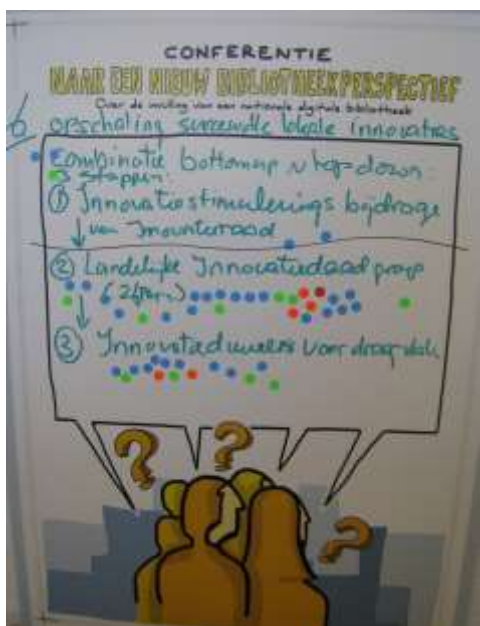 CONFERENTIE
NAAR EEN NIEUW BIBLIOTHEEKPERSPECTIEF
Over de invulling van een nationale digitale bibliotheek
6 opschaling succesvolle lokale innovaties
Combinatie bottom up top-down:
3 stappen:
① Innovatiestimulerings bijdrage
↓ van Innovatieraad
② Landelijke Innovatieraad groep
↓
③ Innovatie voor draagvlak
? ? ?